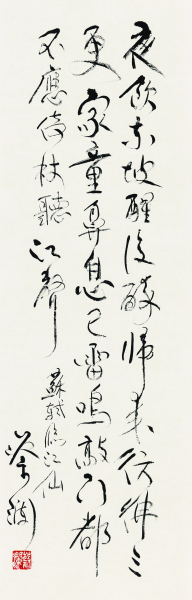 夜飲東坡醒復醉歸來彷彿三
更家童鼻息已雷鳴敲門都
不應倚杖聽江聲
蘇軾臨江仙